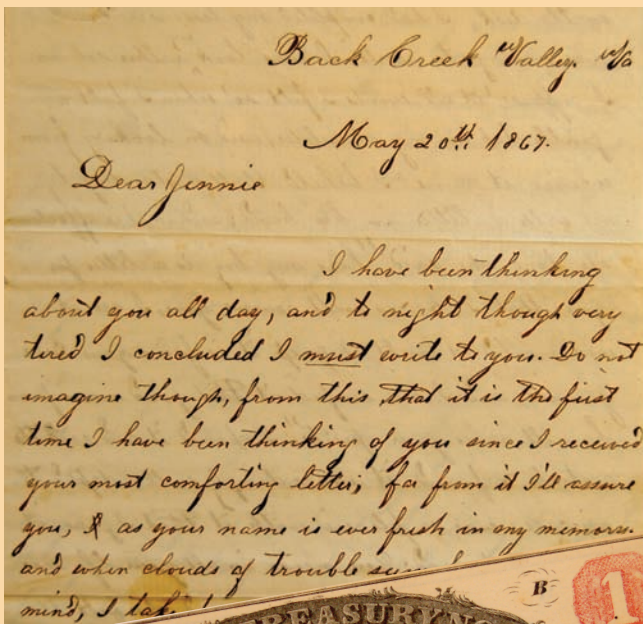 Back Creek Valley. Va
May 20th 1867.
Dear Jennie
I have been thinking
about you all day, and to night though very
tired I concluded I must write to you. Do not
imagine though, from this, that it is the first
time I have been thinking of you since I received
your most comforting letter; far from it I'll assure
you, as your name is ever fresh in my memory.
and when clouds of trouble
mind, I
TREASURY NO
B
1